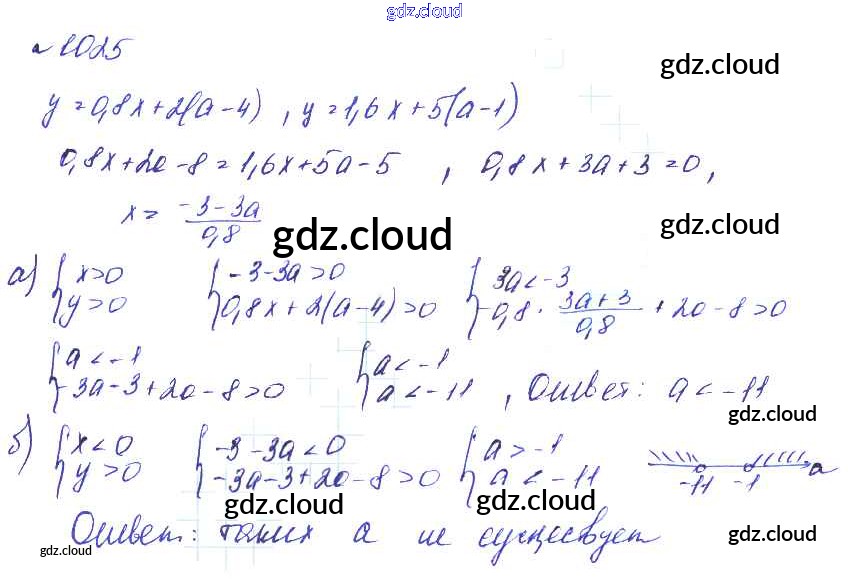 gdz.cloud
№ 1025
gdz.cloud
y = 0,8x + 2(a - 4) , y = 1,6x + 5(a - 1)
0,8x + 2a - 8 = 1,6x + 5a - 5 , 0,8x + 3a + 3 = 0,
gdz.cloud
x = (-3 - 3a)/0,8
gdz.cloud
gdz.cloud
а) { x > 0 { -3 - 3a > 0 { 3a < -3
y > 0 0,8x + 2(a - 4) > 0 -0,8 · (3a + 3)/0,8 + 2a - 8 > 0
{ a < -1 { a < -1
-3a - 3 + 2a - 8 > 0 a < -11 , Ответ: a < -11
gdz.cloud
б) { x < 0 { -3 - 3a < 0 { a > -1
y > 0 -3a - 3 + 2a - 8 > 0 a < -11 -11 -1 a
gdz.cloud gdz.cloud
Ответ: таких a не существует
gdz.cloud gdz.cloud